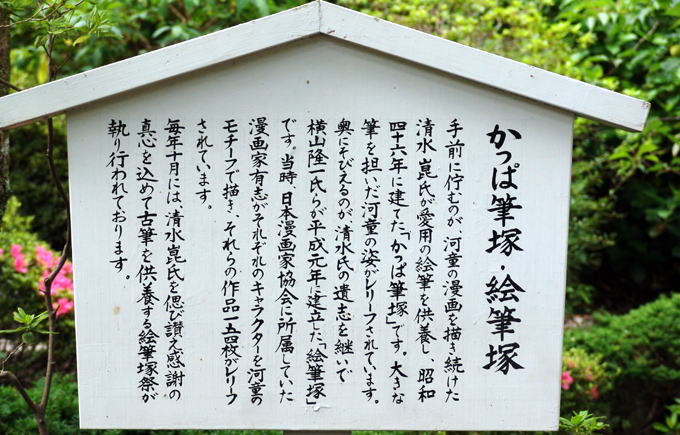 かっぱ筆塚・絵筆塚
手前に佇むのが、河童の漫画を描き続けた
清水崑氏が愛用の絵筆を供養し、昭和
四十六年に建てた「かっぱ筆塚」です。大きな
筆を担いだ河童の姿がレリーフされています。
奥にそびえるのが、清水氏の遺志を継いで
横山隆一氏らが平成元年に建立した「絵筆塚」
です。当時、日本漫画家協会に所属していた
漫画家有志がそれぞれのキャラクターを河童の
モチーフで描き、それらの作品一五四枚がレリーフ
されています。
毎年十月には、清水崑氏を偲び讃え感謝の
真心を込めて古筆を供養する絵筆塚祭が
執り行われております。